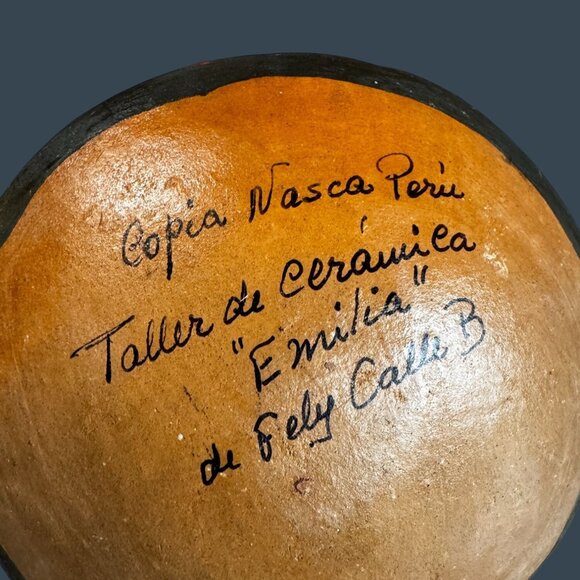 Copia Nasca Perú
Taller de cerámica
"Emilia"
de Fely Calle B